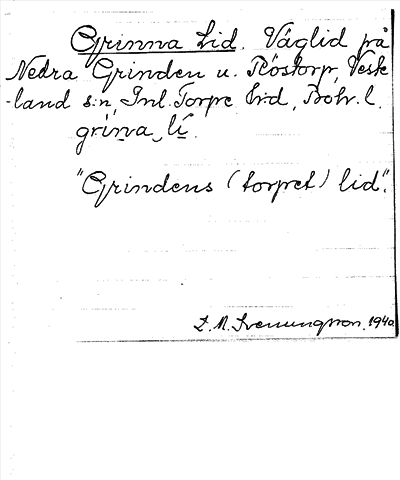 Grinna Lid. Väglid på
Nedra Grinden u. Röstorp, Veske
-land s:n, Inl. Torpe h:d, Boh. l.
grinna lí.
"Grindens (torpet) lid".
S. M. Svenungsson. 1940